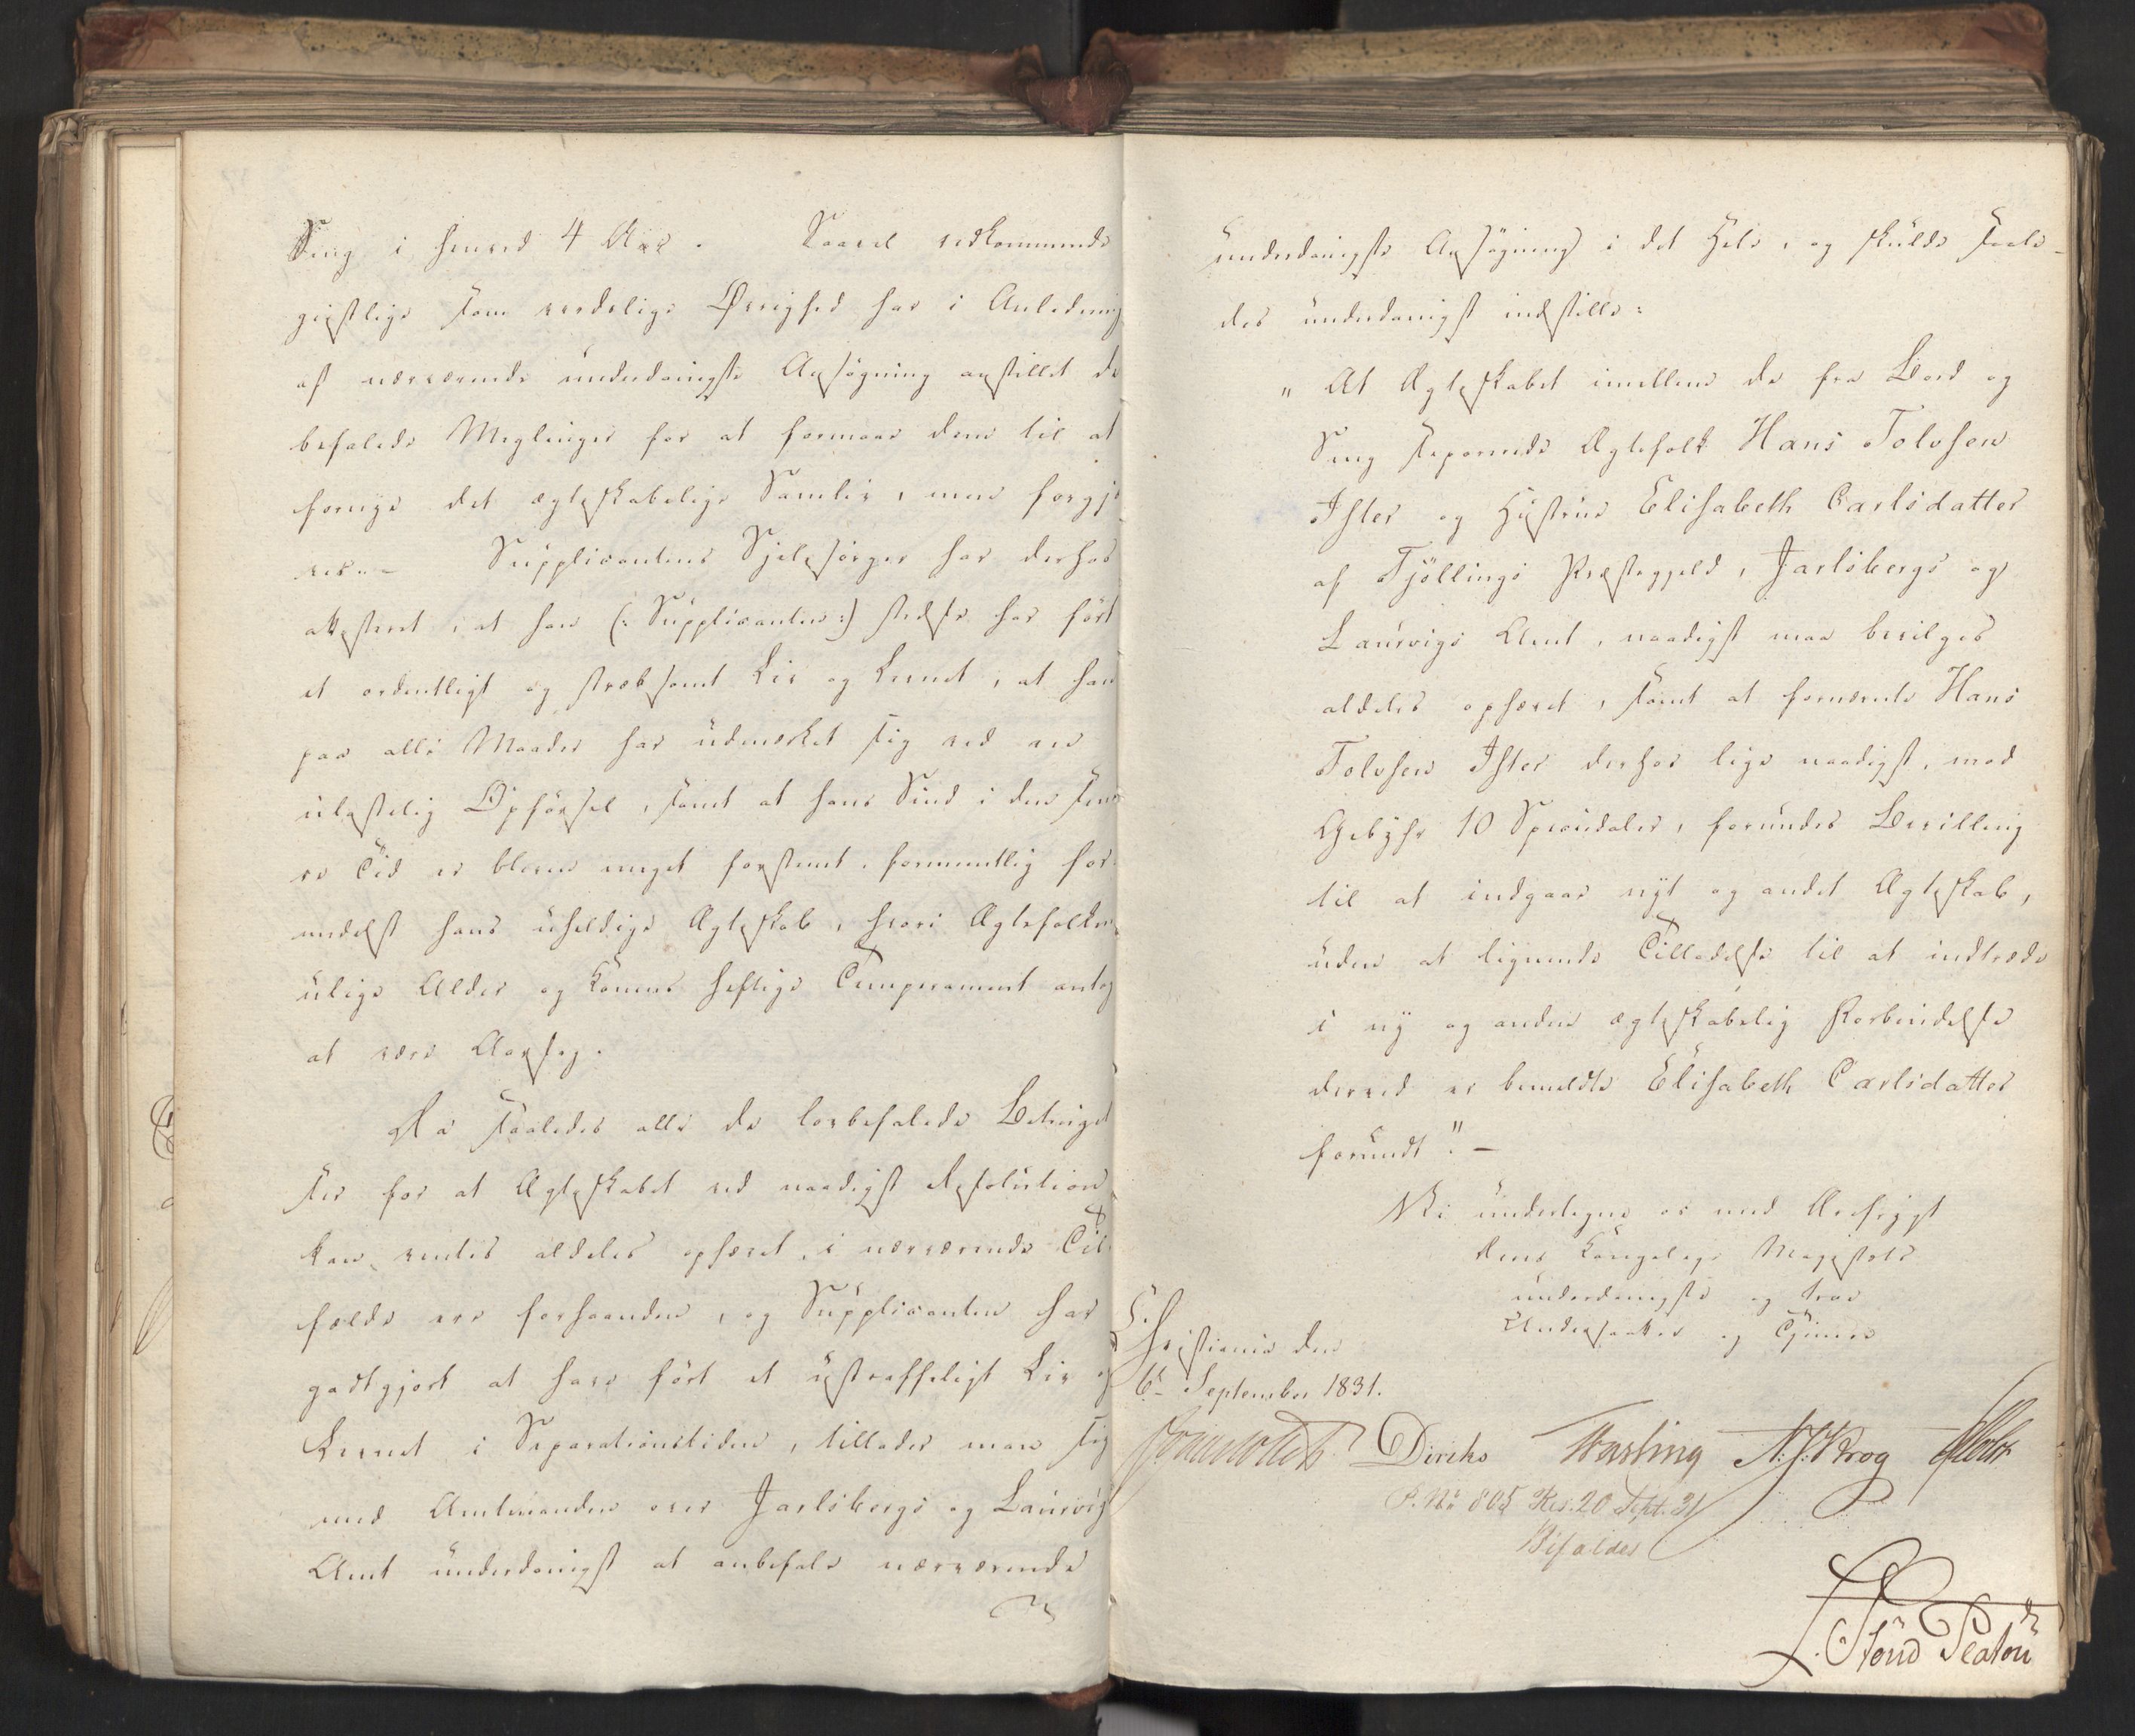 Seng i henved 4 Aar. Saavel vedkommende
geistlige som verdslige Øvrighed har i Anledning
af nærværende underdanigste Ansøgning anstillet de
befalede Meglinger for at formaae dem til at
fornye det ægteskabelige Samliv, men forgje-
ves. – Supplicantens Sjelesørger har derhos
attesteret, at han (: Supplicanten :) stedse har ført
et ordentligt og stræbsomt Liv og Levnet, at han
paa alle Maader har udmærket sig ved en
ulastelig Opførsel, samt at hans Sind i den sene-
re Tid er bleven meget forstemt, formentlig for-
medelst hans uheldige Ægteskab, hvori Ægtefolkenes
ulige Alder og Konens heftige Temperament antages
at være Aarsag.
Da saaledes alle de lovbefalede Betingel-
ser for at Ægteskabet ved naadigst Resolution
kan ventes aldeles ophævet, i nærværende Til-
fælde ere forhaanden, og Supplicanten har
godtgjort at have ført et ustraffeligt Liv og
Levnet i Separationstiden, tillader man sig
med Amtmanden over Jarlsbergs og Laurvigs
Amt underdanigst at anbefale nærværende
underdanigste Ansøgning i det Hele, og skulde saale-
des underdanigst indstille:
"At Ægteskabet imellem de fra Bord og
Seng separerede Ægtefolk Hans Tolvsen
Ister og Hustrue Elisabeth Carlsdatter
af Tjøllings Præstegjeld, Jarlsbergs og
Laurvigs Amt, naadigst maa bevilges
aldeles ophævet, samt at fornævnte Hans
Tolvsen Ister derhos lige naadigst, mod
Gebyhr 10 Speciedaler, forundes Bevilling
til at indgaae nyt og andet Ægteskab,
uden at lignende Tilladelse til at indtræde
i ny og anden ægteskabelig Forbindelse
derved er bemeldte Elisabeth Carlsdatter
forundt." –
Vi undertegne os med Ærefrygt
Deres Kongelige Majestæts
underdanigste og troe
Undersaatter og Tjenere
Christiania den
6te September 1831.
Diriks N. J. Krog
P. No 805 Res. 20 Sept. 31
Bifaldes